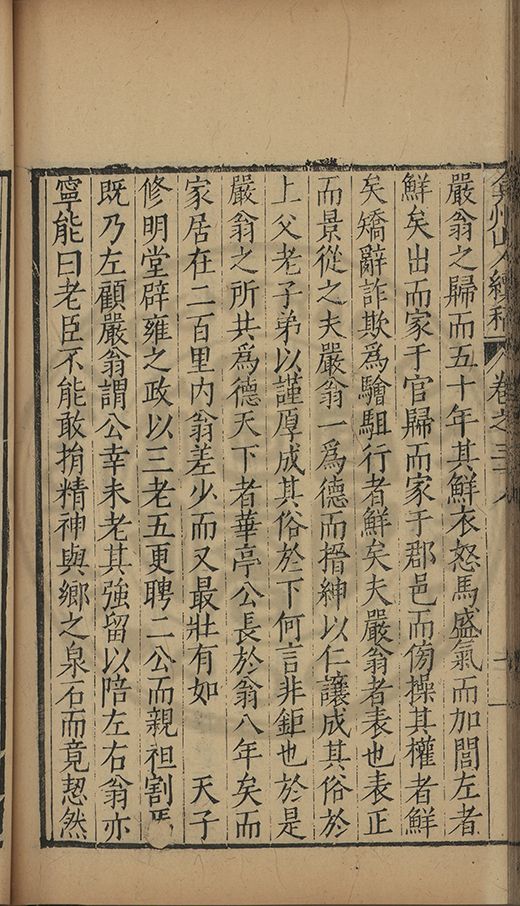 弇州山人續稿 卷之三十八
嚴翁之歸而五十年其鮮衣怒馬盛氣而加閭左者
鮮矣出而家于官歸而家于郡邑而傍操其權者鮮
矣矯辭詐欺爲驓駔行者鮮矣夫嚴翁者表也表正
而景從之夫嚴翁一爲德而搢紳以仁讓成其俗於
上父老子弟以謹厚成其俗於下何言非鉅也於是
嚴翁之所共爲德天下者華亭公長於翁八年矣而
家居在二百里內翁差少而又最壯有如 天子
修明堂辟雍之政以三老五更聘二公而親袒割焉
既乃左顧嚴翁謂公幸未老其強留以陪左右翁亦
寧能曰老臣不能敢捐精神與鄉之泉石而竟恝然